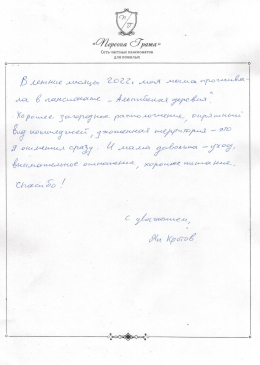 «Пересна Грата»
Сеть частных пансионатов
для пожилых
В летние месяцы 2022г. моя мама прожива-
ла в пансионате „ деревня".
Хорошее загородное расположение, опрятный
вид коттеджей, ухоженная территория - это
я оценил сразу. И мама довольна - уход,
внимательное отношение, хорошее питание.
Спасибо!
С уважением,
Ян Кротов